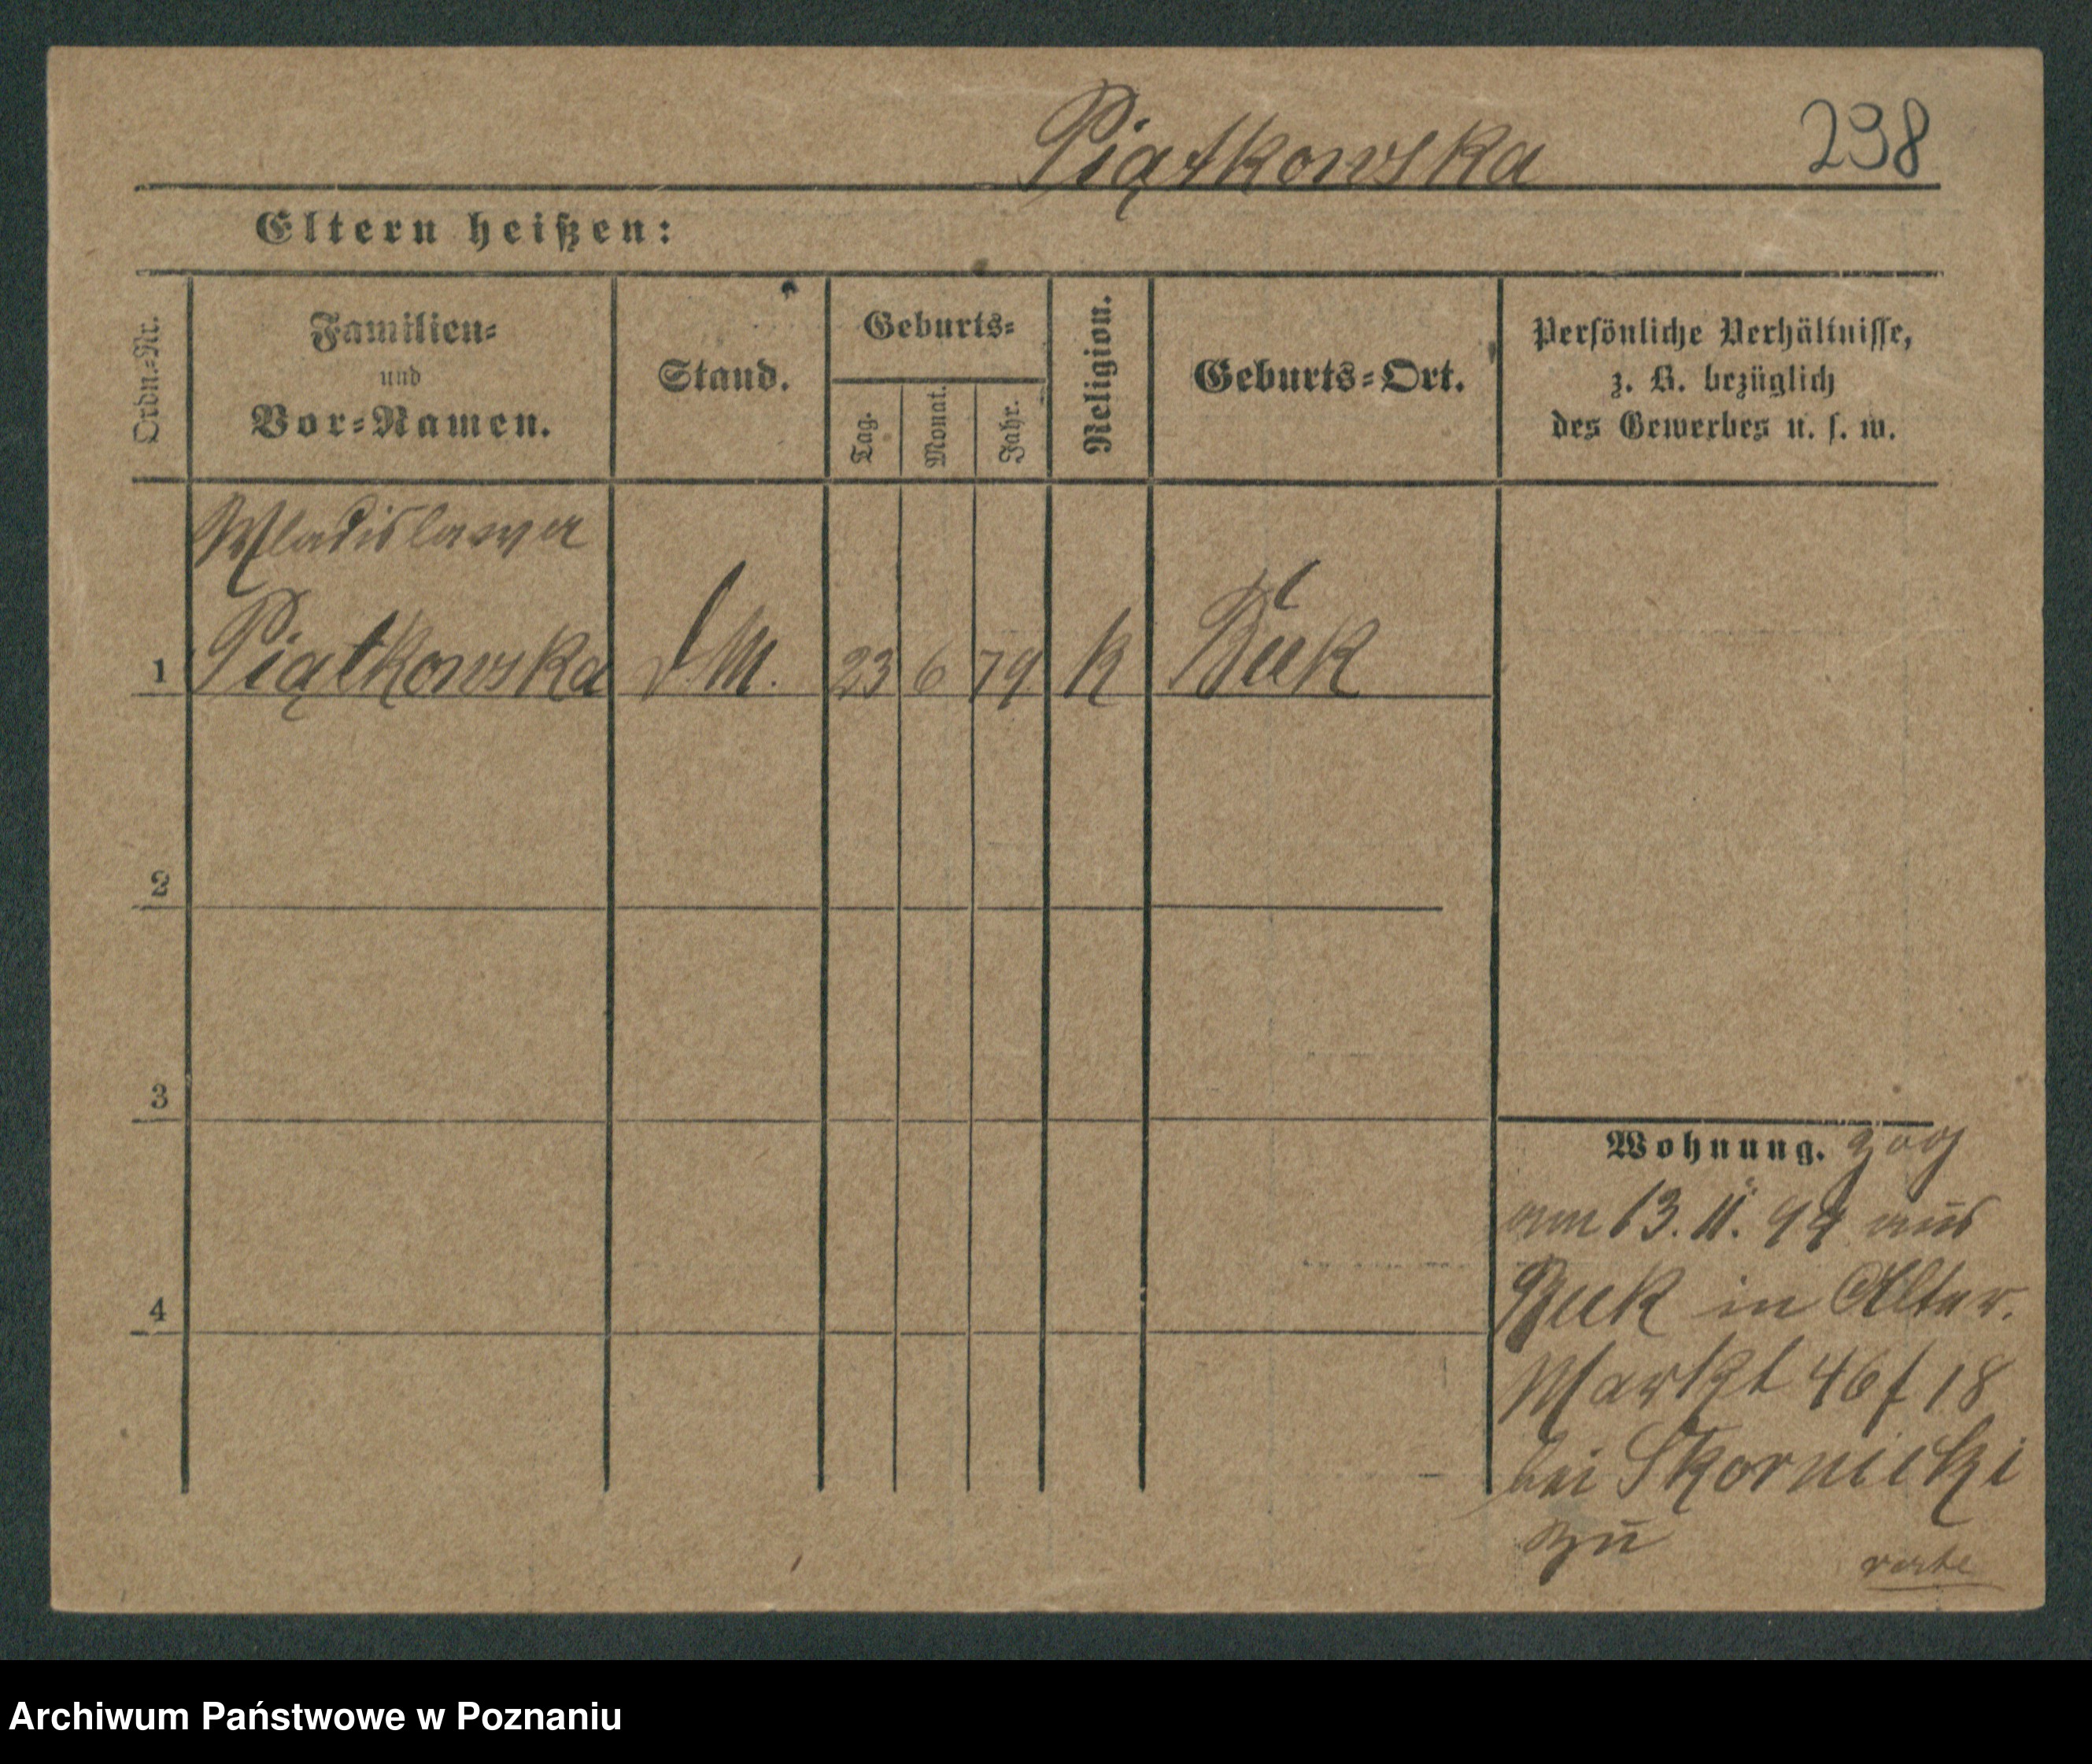 Piątkowska 238
Eltern heißen:
Ordn.-Nr.
Familien-
und
Vor-Namen.
Stand.
Geburts-
Tag.
Monat.
Jahr.
Religion.
Geburts-Ort.
Persönliche Verhältnisse,
z. B. bezüglich
des Gewerbes u. s. w.
Wladislawa
1 Piątkowska D.M. 23 6 79 k Buk
2
3
4
Wohnung. zog
am 13. 11. 94 aus
Buk in Alter.
Markt 46 f 18
bei Skornicki
zu
verte
Archiwum Państwowe w Poznaniu